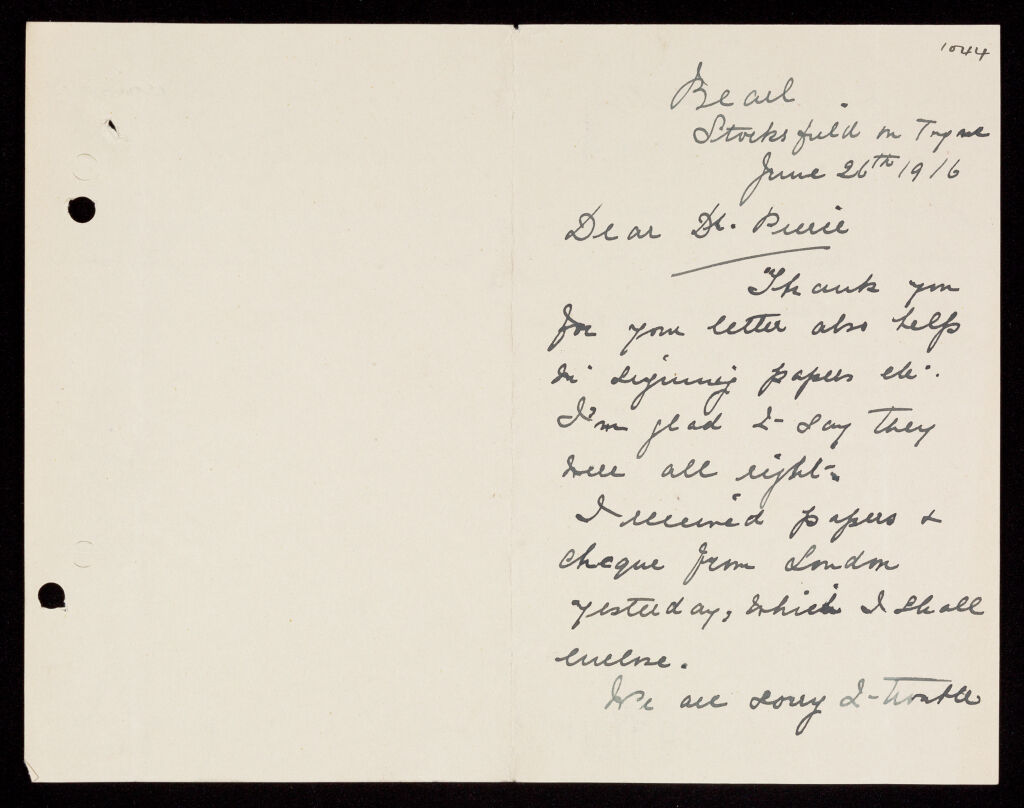 1044
Bearl.
Stocksfield on Tyne
June 26th 1916
Dear Dr. Pirie
Thank you
for your letter also help
in signing papers etc.
I'm glad to say they
were all right.
I received papers &
cheque from London
yesterday, which I shall
enclose.
We are sorry to trouble